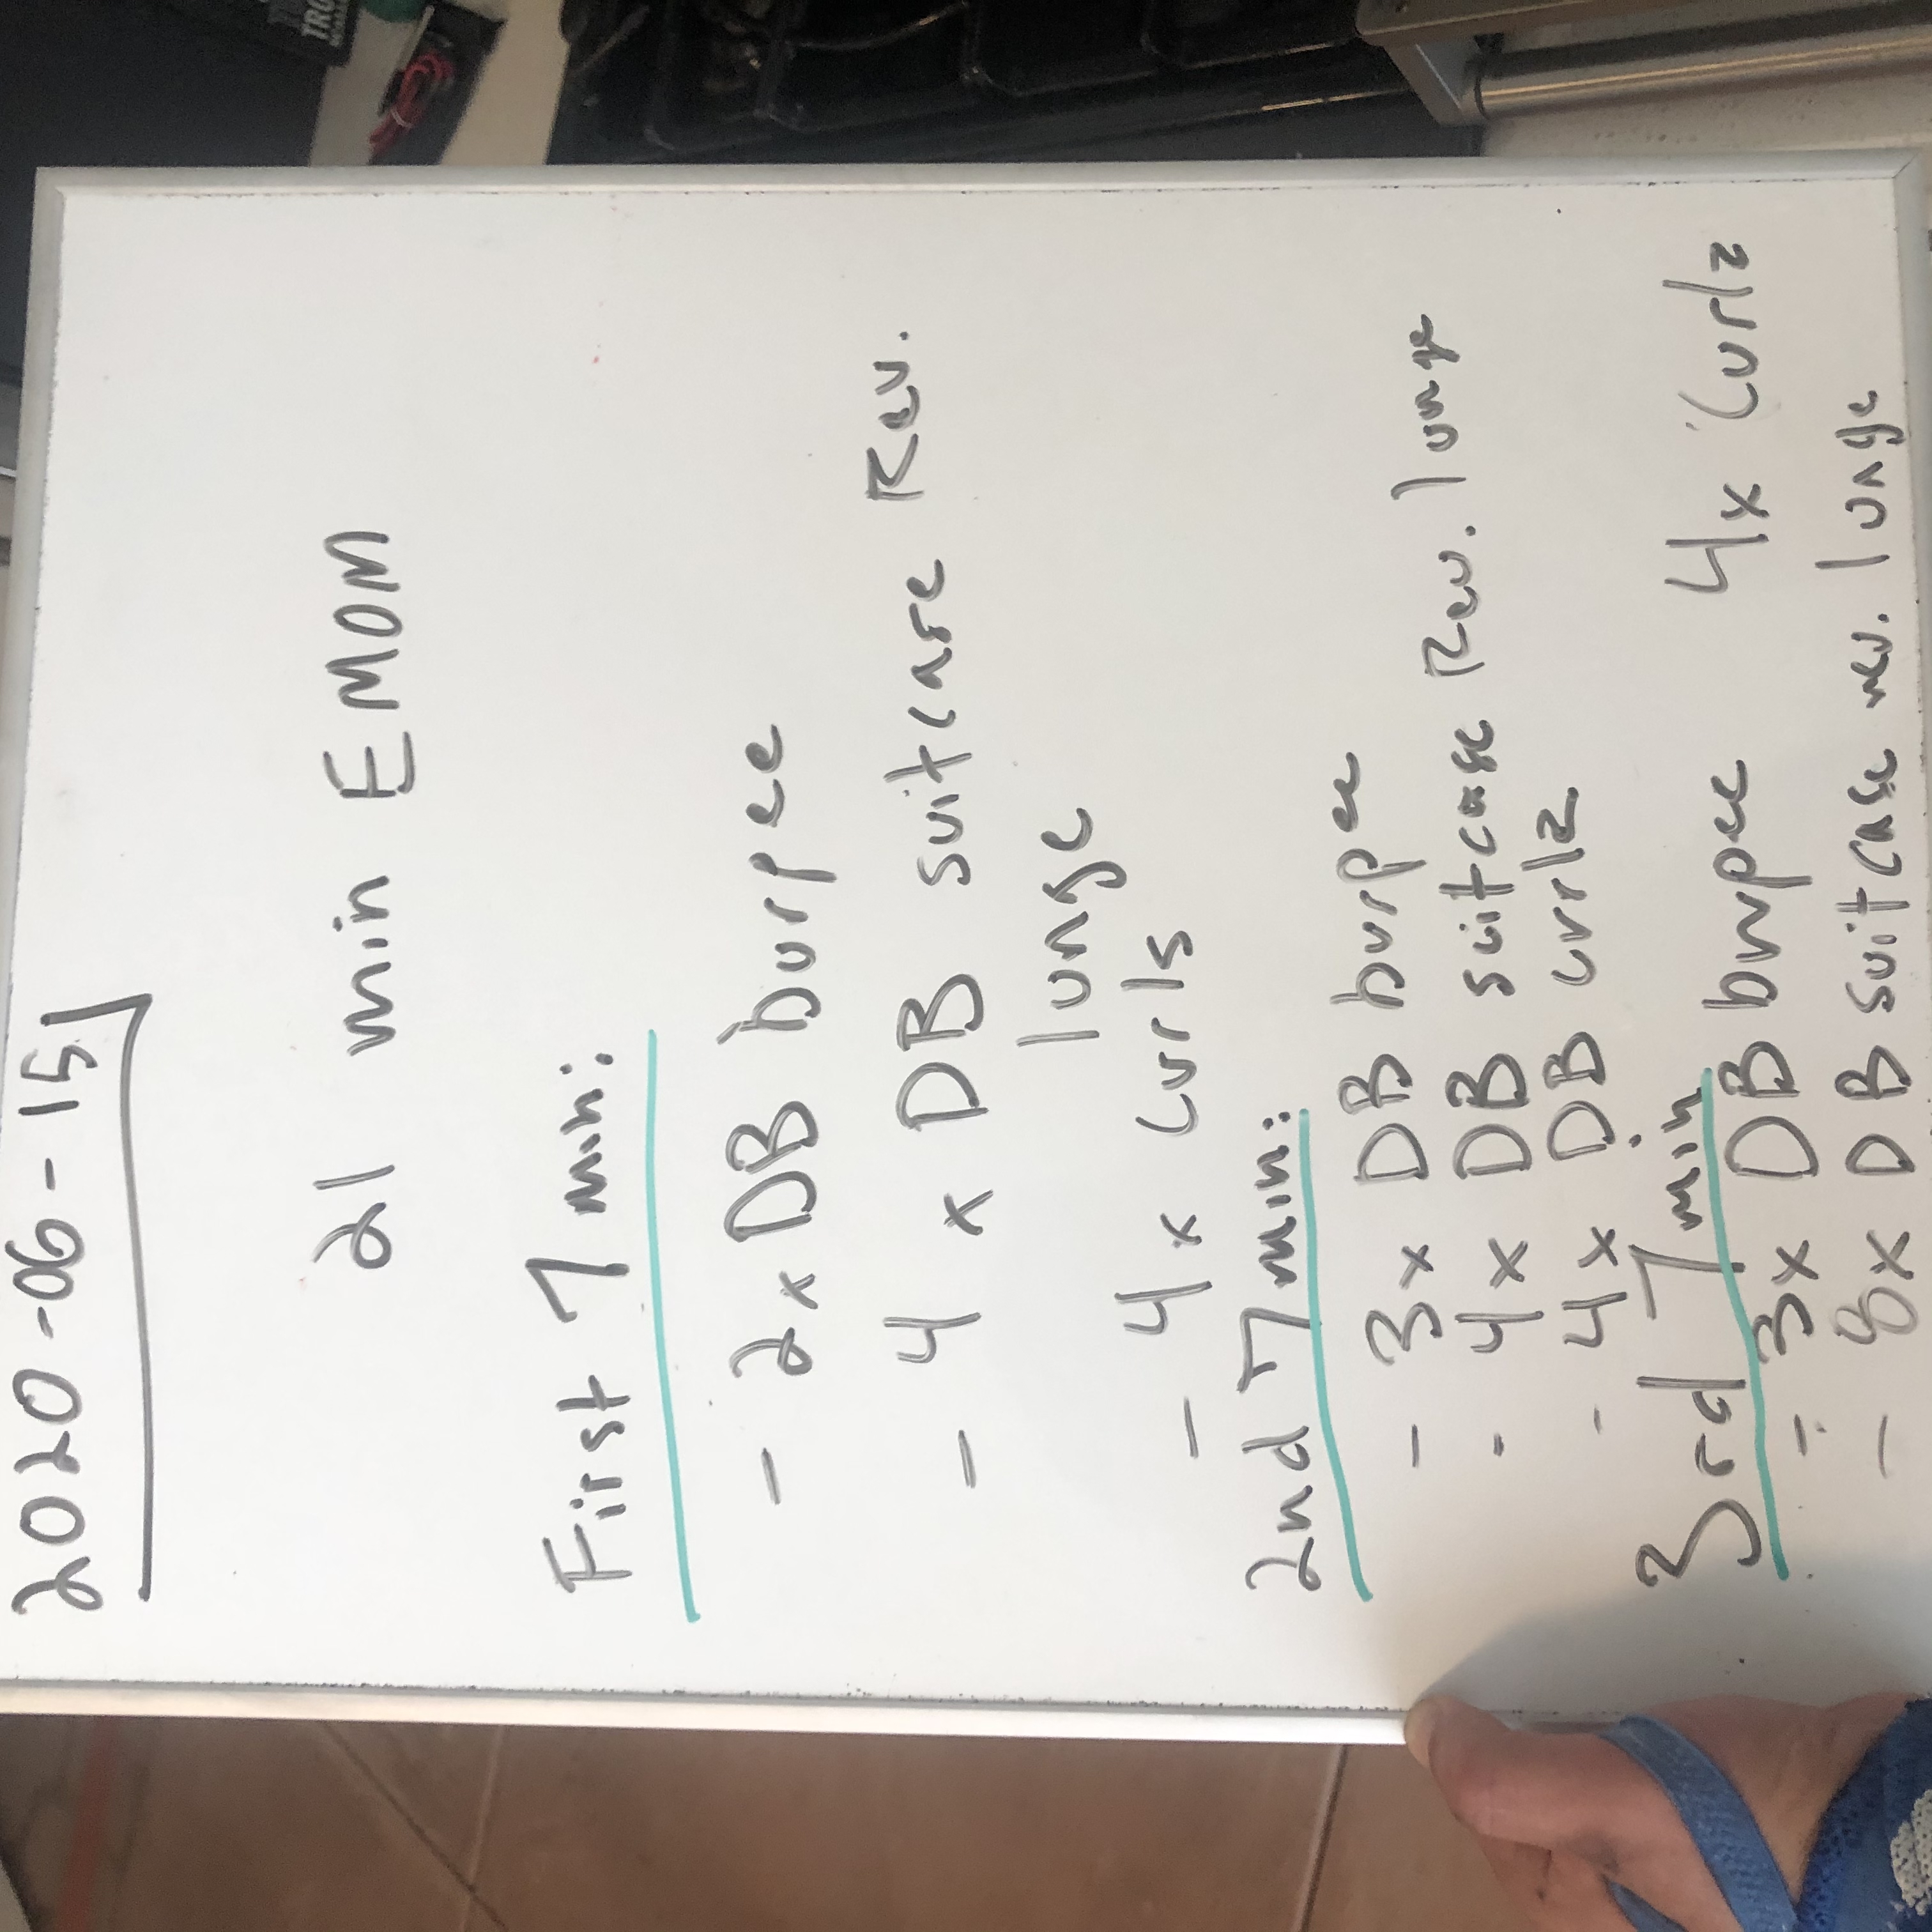 2020-06-15
21 min EMOM
First 7 min:
- 2x DB burpee
- 4 x DB suitcase Rev.
lunge
- 4x Curls
2nd 7min:
- 3x DB burpee
- 4x DB suitcase Rev. lunge
- 4x DB curlz
3rd 7min
- 3x DB burpee
4x Curlz
- 8x DB suitcase rev. lunge